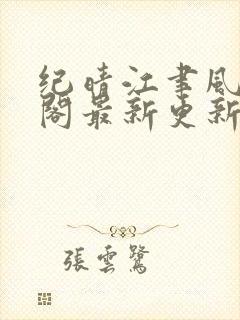 纪晴江聿风
阁最新更新
張雲鷺